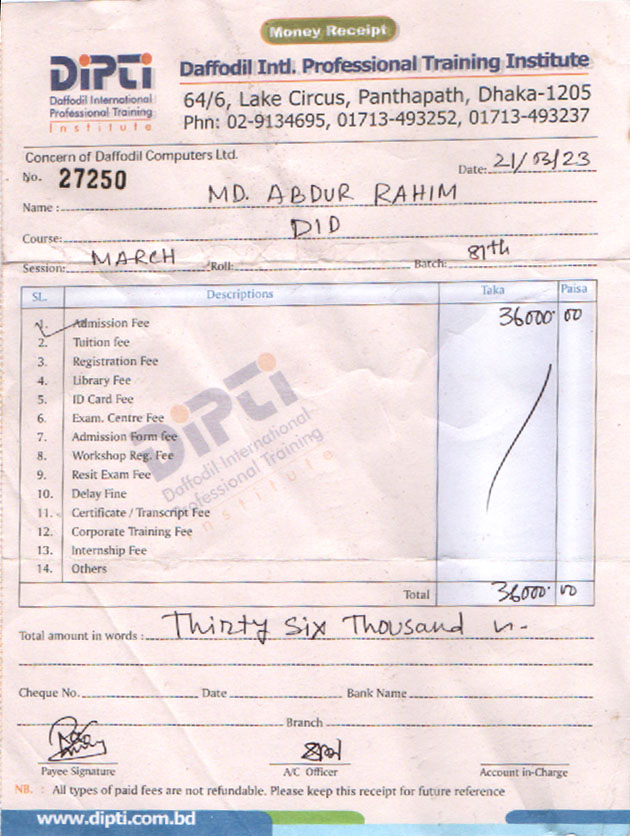 Money Receipt
DIPTI
Daffodil International
Professional Training
Institute
Daffodil Intl. Professional Training Institute
64/6, Lake Circus, Panthapath, Dhaka-1205
Phn: 02-9134695, 01713-493252, 01713-493237
Concern of Daffodil Computers Ltd.
No. 27250
Date: 21/03/23
Name : MD. ABDUR RAHIM
Course: DID
Session: MARCH Roll: Batch: 81th
SL. Descriptions Taka Paisa
1. Admission Fee 36000. 00
2. Tuition fee
3. Registration Fee
4. Library Fee
5. ID Card Fee
6. Exam. Centre Fee
7. Admission Form fee
8. Workshop Reg. Fee
9. Resit Exam Fee
10. Delay Fine
11. Certificate / Transcript Fee
12. Corporate Training Fee
13. Internship Fee
14. Others
DIPTI
Daffodil International
Professional Training
Institute
Total 36000. 00
Total amount in words : Thirty Six Thousand
Cheque No. Date Bank Name
Branch
Payee Signature A/C Officer Account in-Charge
NB. : All types of paid fees are not refundable. Please keep this receipt for future reference
www.dipti.com.bd